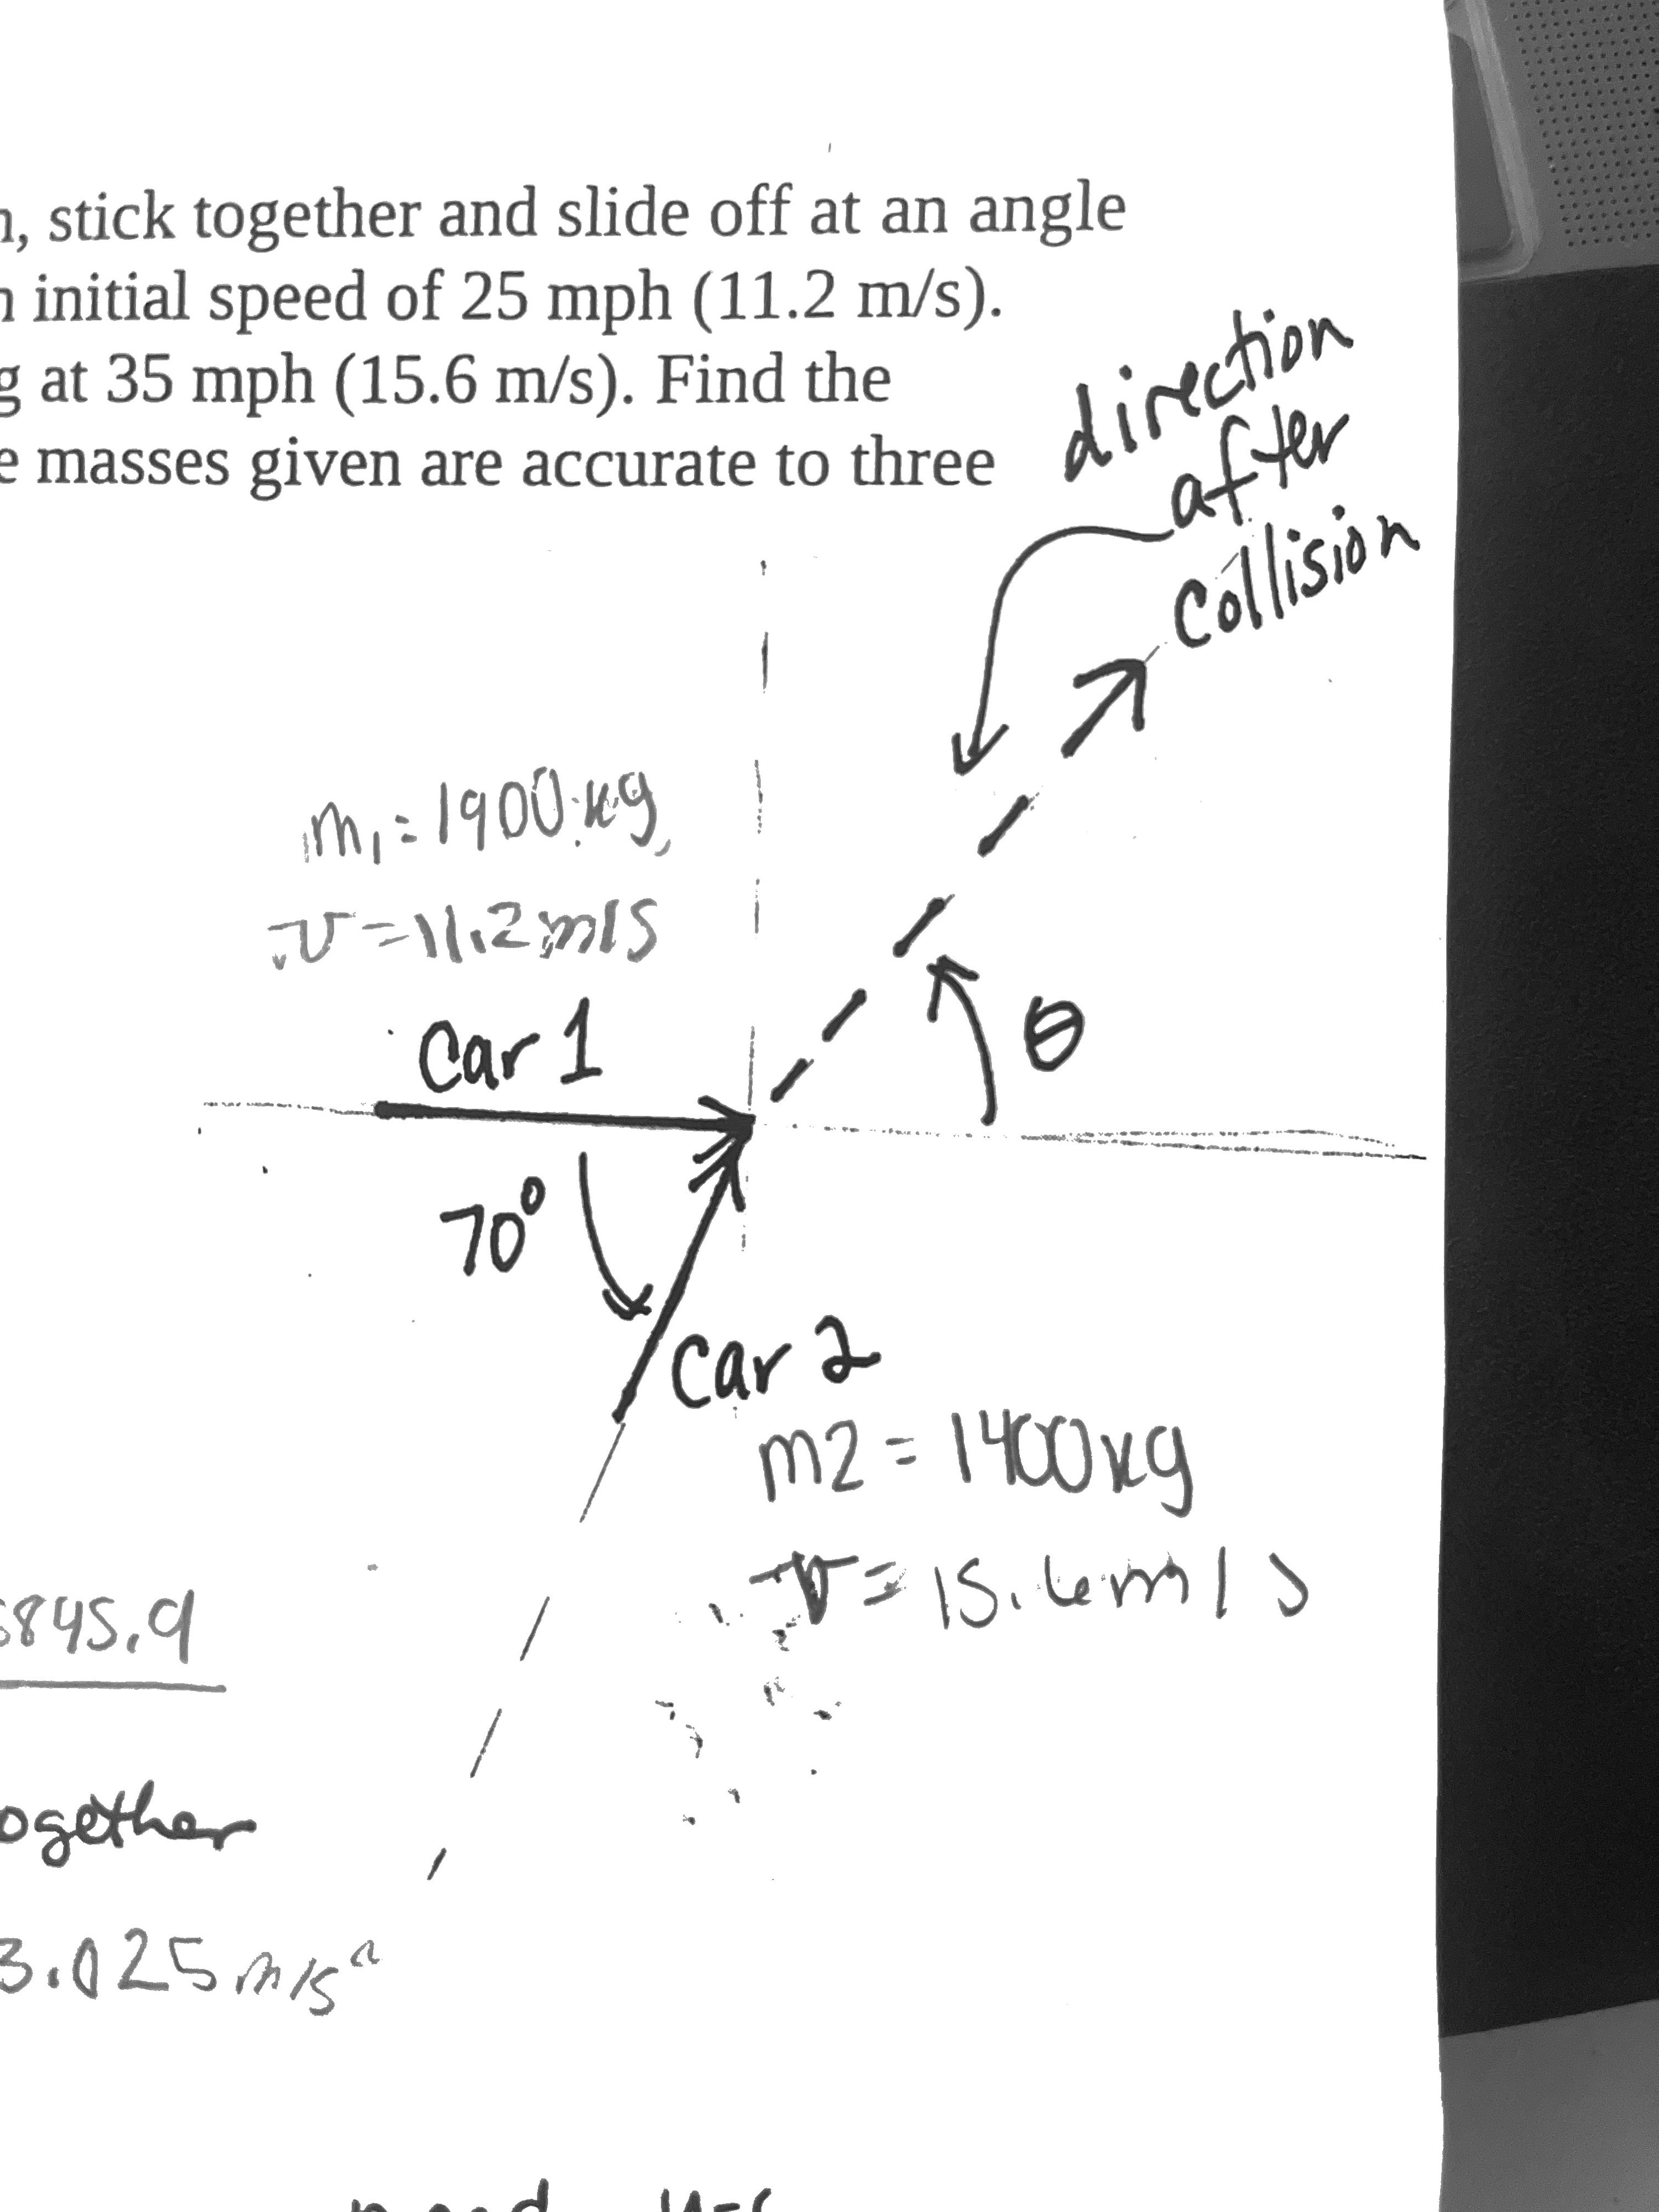 , stick together and slide off at an angle
initial speed of 25 mph (11.2 m/s).
at 35 mph (15.6 m/s). Find the
masses given are accurate to three
direction
after
collision
m₁=1900kg
v=11.2m/s
Car 1
θ
70°
Car 2
m2=1400kg
v=15.6m/s
845.9
ogether
3.025m/s